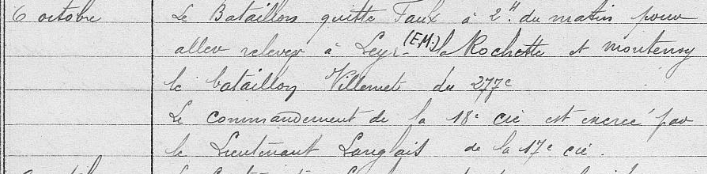 6 octobre Le Bataillon quitte Faux à 2h du matin pour
aller relever à Leyr (EM) la Rochette et montenoy
le bataillon Villemet du 277e
Le commandement de la 18e cie est exercé par
le Lieutenant Langlais de la 17e cie.